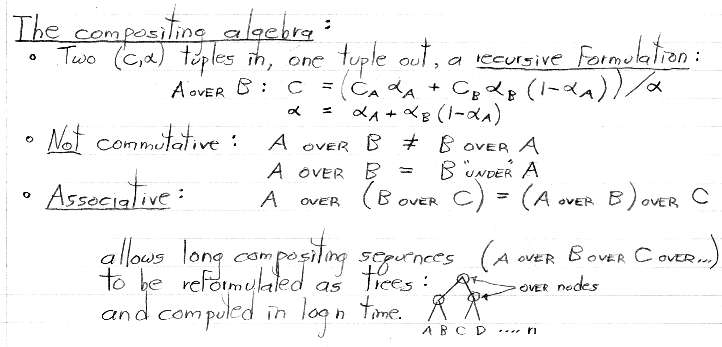 The compositing algebra:
• Two (C,α) tuples in, one tuple out, a recursive formulation:
A OVER B: C = (C_A α_A + C_B α_B (1-α_A))/α
α = α_A + α_B (1-α_A)
• Not commutative: A OVER B ≠ B OVER A
A OVER B = B "UNDER" A
• Associative: A OVER (B OVER C) = (A OVER B) OVER C
allows long compositing sequences (A OVER B OVER C OVER...)
to be reformulated as trees: OVER nodes
and computed in log n time. A B C D .... n